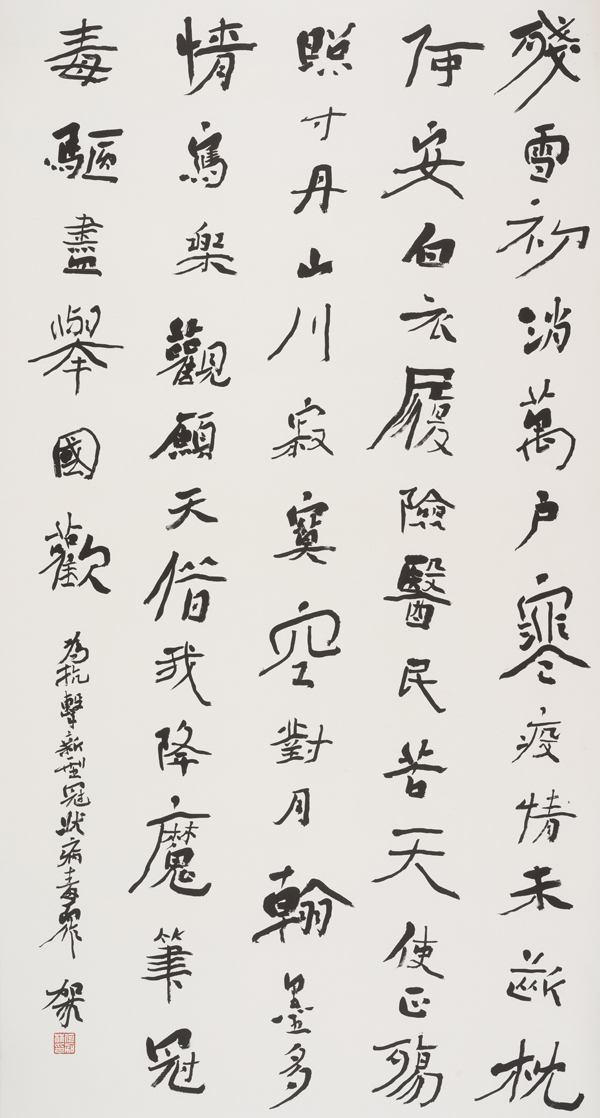 殘雪初消萬戶寒疫情未斷枕
何安白衣履險醫民苦天使正殤
照寸丹山川寂寞空對月翰墨多
情寫樂觀願天借我降魔筆冠
毒驅盡舉國歡
為抗擊新型冠狀病毒而作